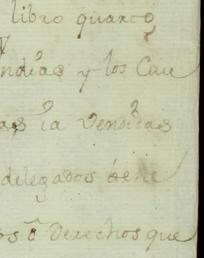 libro quarto
ndias y los Cau
as ia Vendidas
delegados
os ō Derechos que